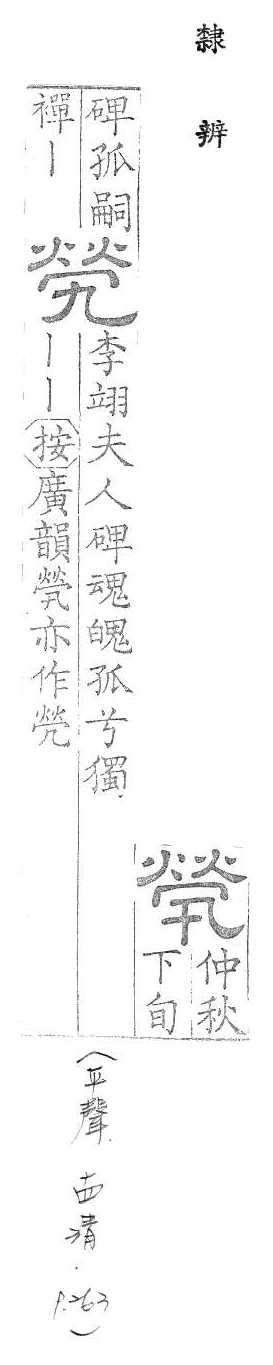 隸辨
煢
仲秋
下旬
碑孤嗣
禪丨
焭
李翊夫人碑魂魄孤兮獨
丨丨按廣韻煢亦作焭
(平聲 十四清. P.263)